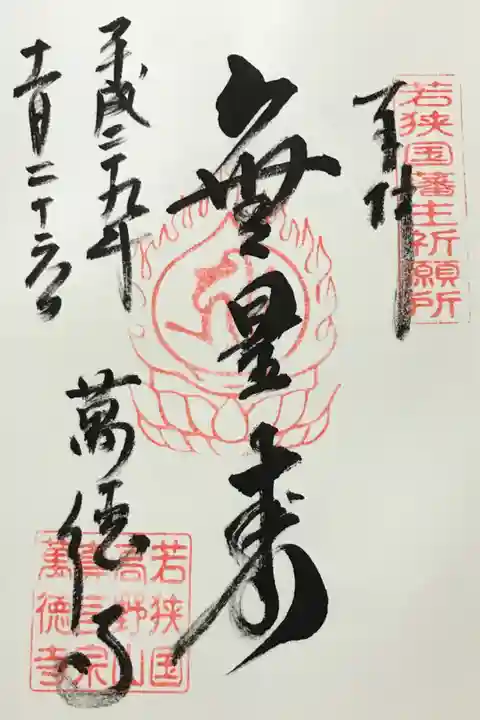 奉拝
若狭国藩主祈願所
無量寿
平成二十九年
十一月二十六日
萬徳寺
若狭国
吾野山
真言宗
萬徳寺